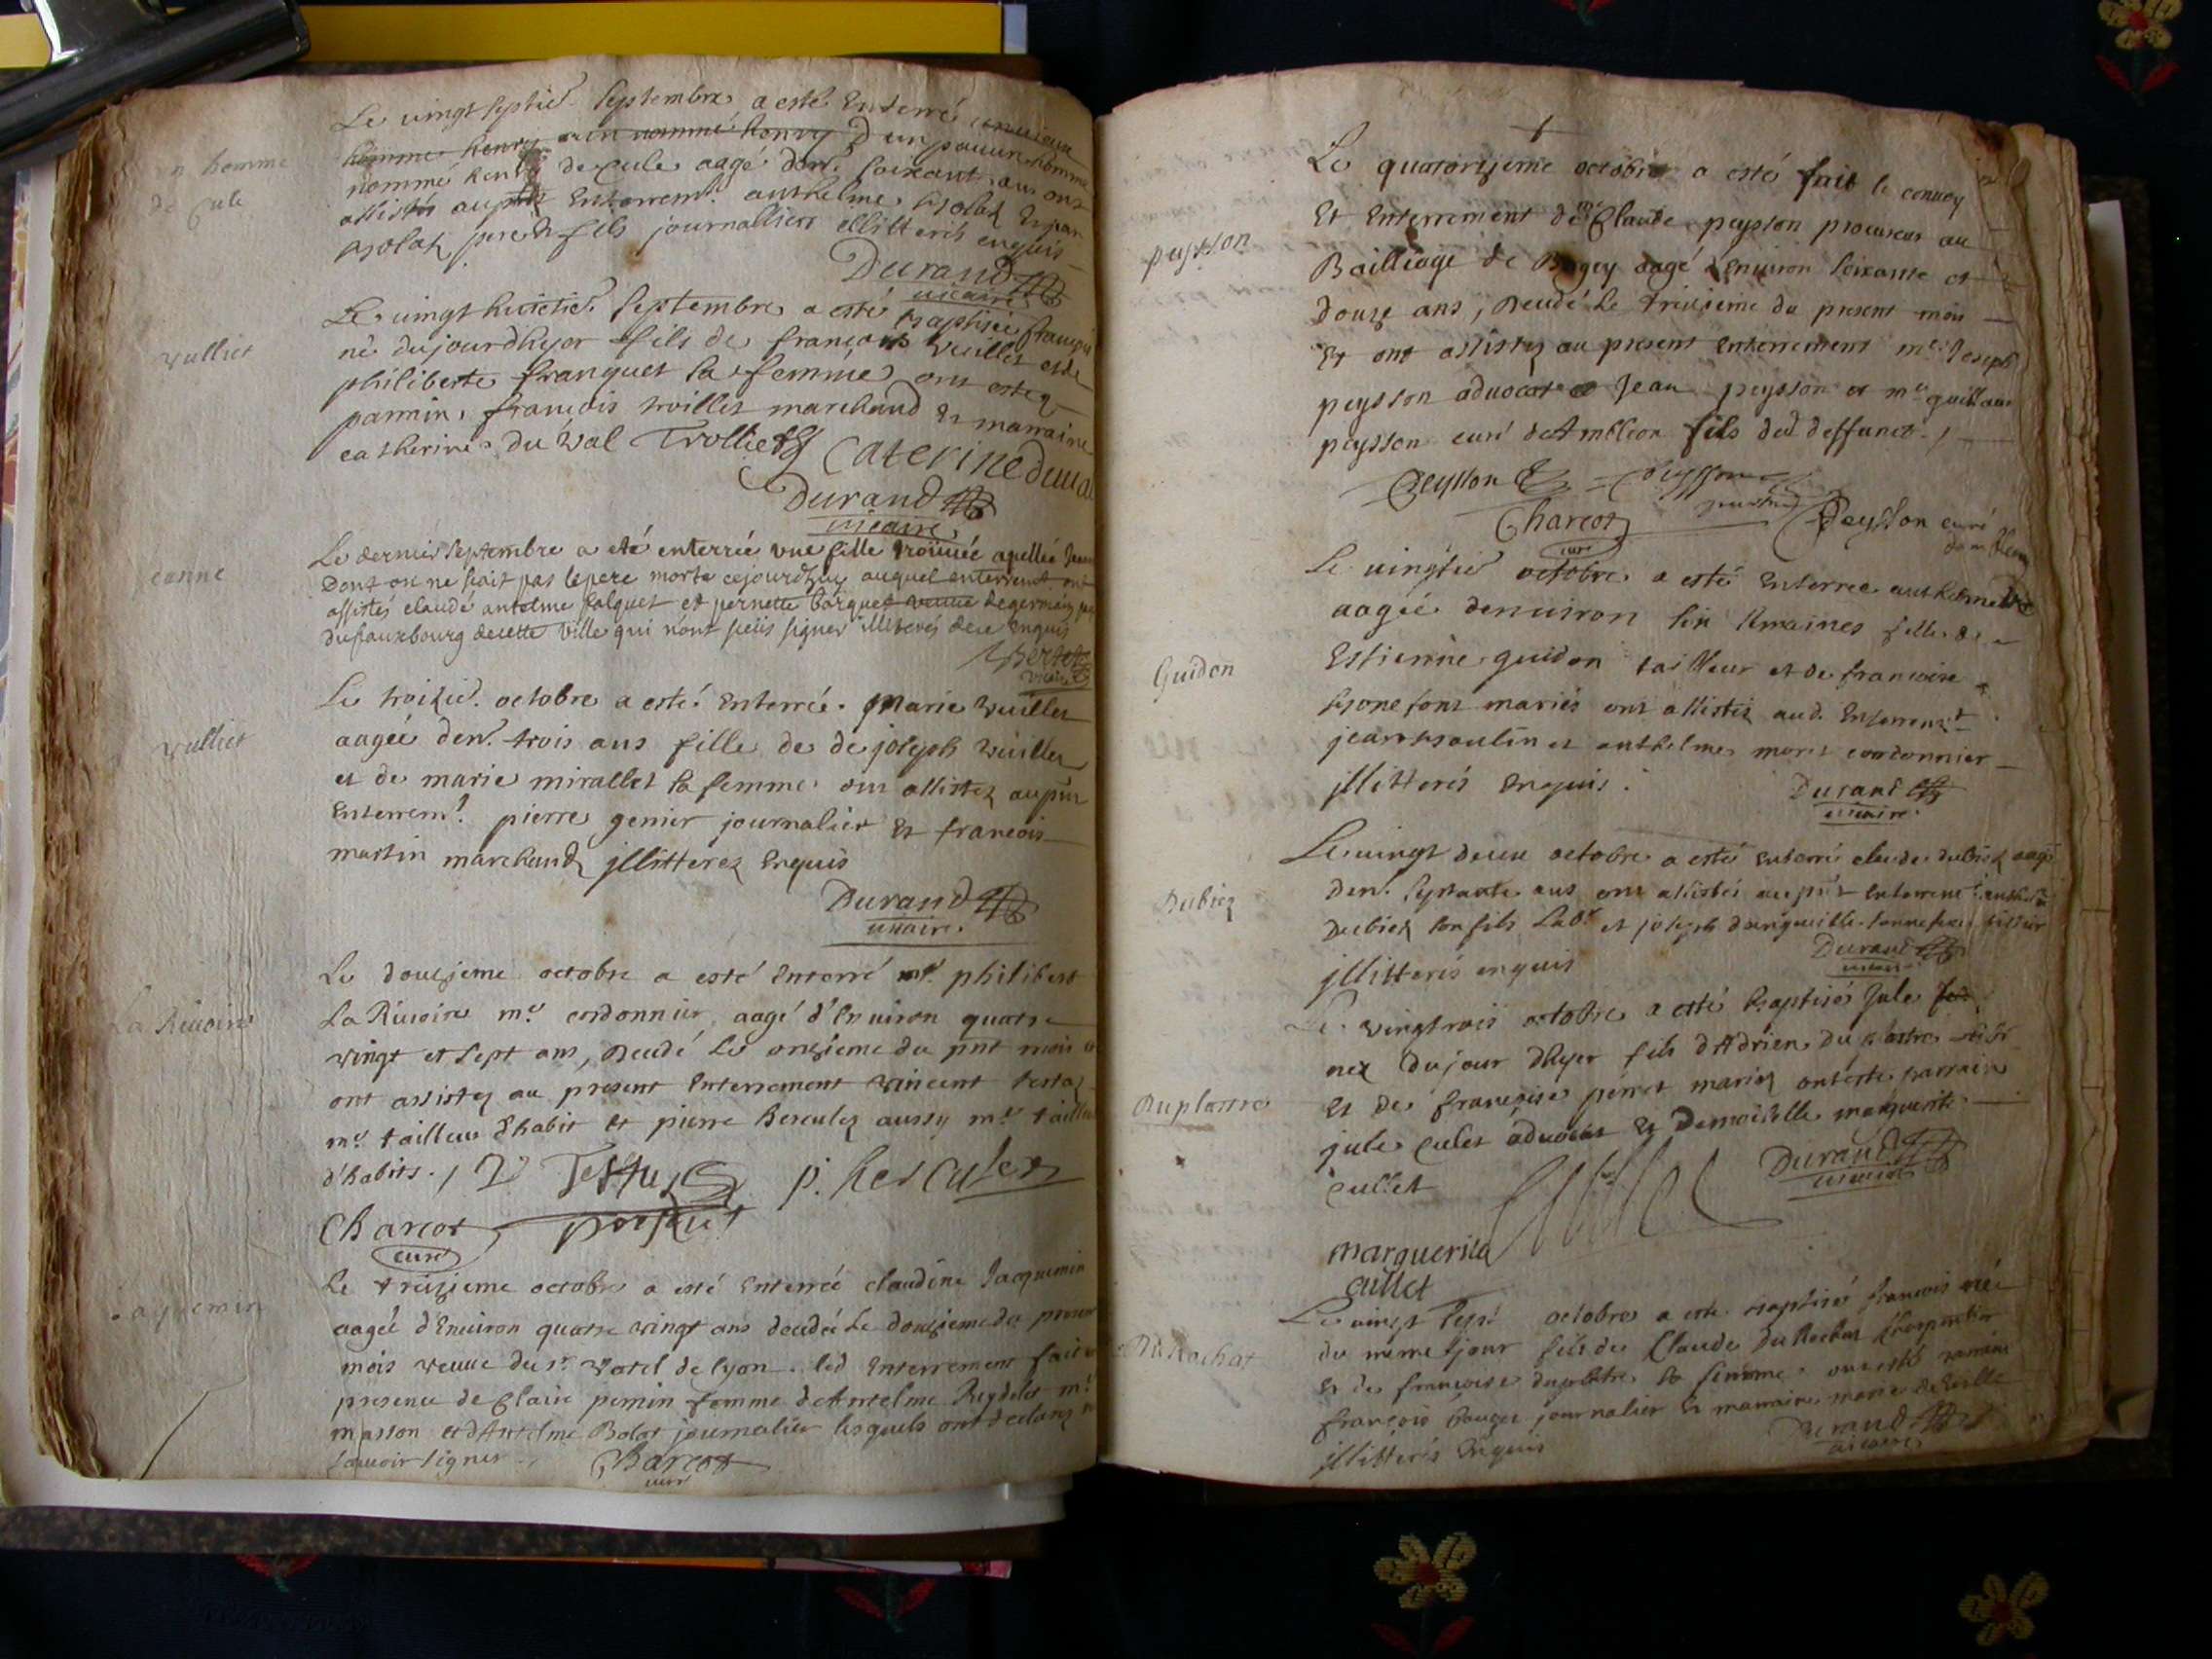 un homme
de Cule
Le vingt septie. septembre a esté Enterré un vieux
homme henry ou un nommé henry D un pauvre homme
nommé henry de Cule aagé denv. soixant ans ont
assistés au pnt Enterremt. anthelme Bolot Et jean
Bolot pere et fils journaliers illitterés enquis
Durand
vicaire
vulliet
Le vingt huictie. septembre a esté baptisé françois
né dujourdhyer fils de françois vuillet et de
philiberte franquet sa femme ont estez
parrin françois trolliet marchand Et marraine
catherine du val Trolliet Caterine duval
Durand
vicaire
eanne
Le dernier septembre a eté enterrée une fille trouuée apellée Jeanne
Dont on ne sçait pas le pere morte cejourdhuy auquel enterremt ont
assistés claude antelme falquet et pernette barquet veuue de germain
du fauxbourg de cette ville qui n'ont sceüs signer illiterés de ce enquis
Bertet
vicaire
vulliet
Le troizie. octobre a esté Enterrée Marie vuillet
aagée denv. trois ans fille de de joseph vuillet
et de marie mirallet sa femme ont assistez au pnt
Enterremt. pierre genier journalier Et francois
martin marchand jllitterez Enquis
Durand
vicaire.
La Riuoire
Le douzjeme octobre a esté Enterré mre. philibert
La Riuoire me. cordonnier, aagé d'Enuiron quatre
vingt et sept ans, decedé Le onzjeme du pnt mois et
ont assistez au present Enterrement vincent testaz
me. tailleur d'habit et pierre herculez aussy me. tailleur
d'habits. / V Testu p. herculez
Charcot
curé
Jaquemin
Le treizjeme octobre a esté Enterrée claudine Jacquemin
aagée d'Enuiron quatre vingt ans decedée Le douzjeme du present
mois veuue du sr. vatel de lyon. led Enterrement fait en
presence de Claire pernin femme de Antelme Reydelet me.
masson et d'Antelme Bolot journalier lesquels ont declarez ne
sauoir signer.
Charcot
curé
peysson
Le quatorzjeme octobre a esté fait le conuoy
Et Enterrement de me Claude peysson procureur au
Bailliage de Bugey aagé d'Enuiron soixante et
douze ans, decedé Le treizieme du present mois
Et ont assistez au present Enterrement me. Joseph
peysson aduocat Jean peysson et me guillaume
peysson curé de Ambleon fils dud deffunct. /
Peysson Peysson
Charcot
curé
Peysson curé
dambleon
Guidon
Le vingtie. octobre a esté Enterree anthelmette
aagée denuiron six semaines fille de
Estienne guidon tailleur et de francoise
mariés ont assistez aud. Enterremt.
jean et anthelme moret cordonnier
jllitterés Enquis.
Durand
vicaire.
Dubiez
Le vingt deux octobre a esté enterré claude dubiez aagé
denv. septante ans ont assistés au pnt Enterremt.
Dubiez son fils Labr. et joseph
jllitterés enquis
Durand
vicaire
Duplastre
Le vingtrois octobre a esté baptisé Jule
nez dujour dhyer fils d'Adrien Duplastre
Et de françoise perret mariez ont esté parrain
jule Cullet aduocat Et Demoiselle marguerite
Cullet
Durand
vicaire
Cullet
marguerite
cullet
Du Rochat
Le vingt sept octobre a esté baptisé francois né
du meme jour fils de Claude Du Rochat charpentier
Et de francoise duplatre sa femme. ont esté parrain
francois journalier Et marraine marie
jllitterés Enquis
Durand
vicaire